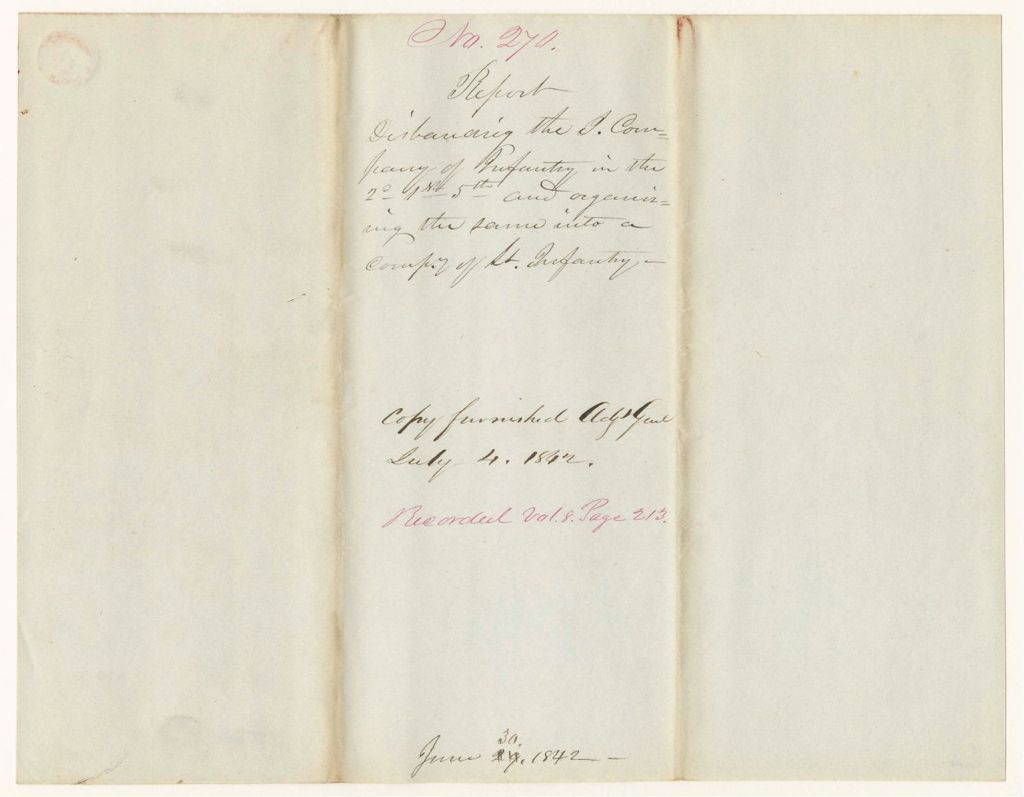 No. 270.
Report
Disbanding the I. Com=
pany of Infantry in the
2d 1st 5th and organiz=
ing the same into a
Comp.y of Lt. Infantry,—
Copy furnished Adjt Genl
July 4. 1842.
Recorded Vol. 8. Page 213.
30
June 1842—